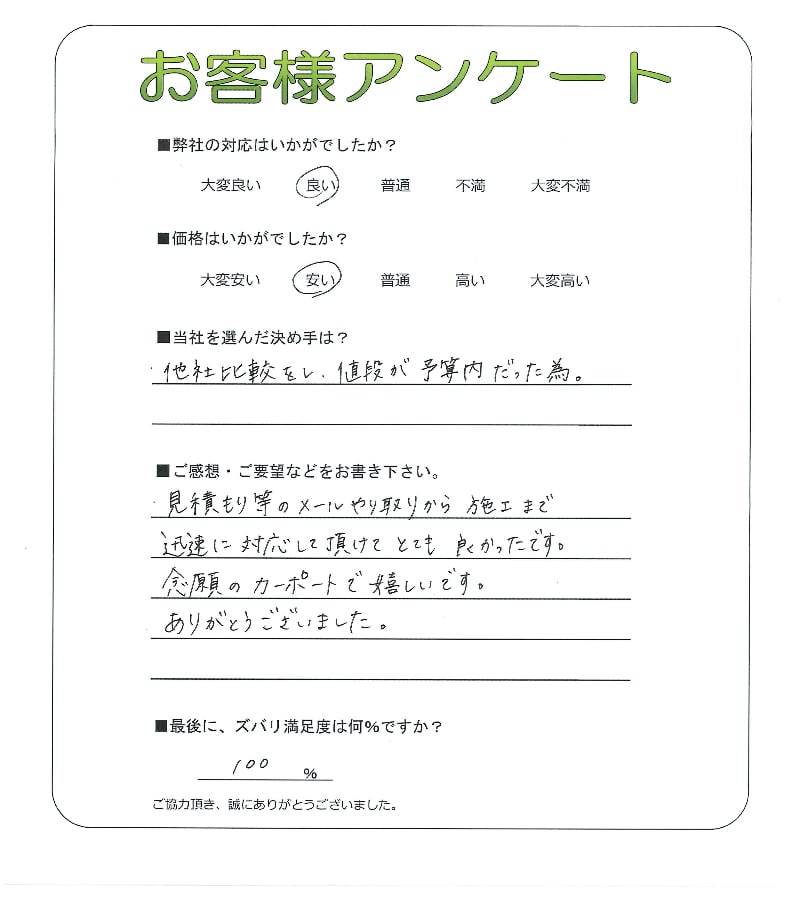 お客様アンケート
■弊社の対応はいかがでしたか？
大変良い 良い 普通 不満 大変不満
■価格はいかがでしたか？
大変安い 安い 普通 高い 大変高い
■当社を選んだ決め手は？
・他社比較をし、値段が予算内だった為。
■ご感想・ご要望などをお書き下さい。
・見積もり等のメールやり取りから施工まで
迅速に対応して頂けてとても良かったです。
念願のカーポートで嬉しいです。
ありがとうございました。
■最後に、ズバリ満足度は何％ですか？
100 ％
ご協力頂き、誠にありがとうございました。